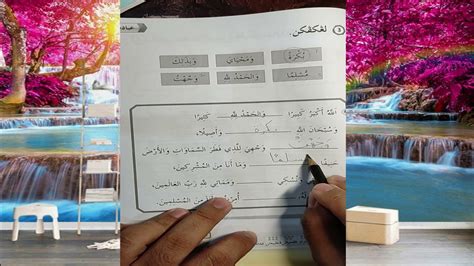 3 لڠكڤكن.
بُكْرَةً وَمَحْيَايَ وَبِذَلِكَ
مُسْلِمًا وَالْحَمْدُ لِلهِ وَجَّهْتُ
اللهُ أَكْبَرُ كَبِيْرًا وَالْحَمْدُ لِلهِ كَثِيْرًا
وَسُبْحَانَ اللهِ بكرة وَأَصِيْلًا،
وجهت وَجْهِيَ لِلَّذِي فَطَرَ السَّمَاوَاتِ وَالْأَرْضَ
حَنِيفًا وَمَا أَنَا مِنَ الْمُشْرِكِينَ،
نُسُكِي وَمَمَاتِي لِلهِ رَبِّ الْعَالَمِينَ،
مِنَ الْمُسْلِمِينَ.